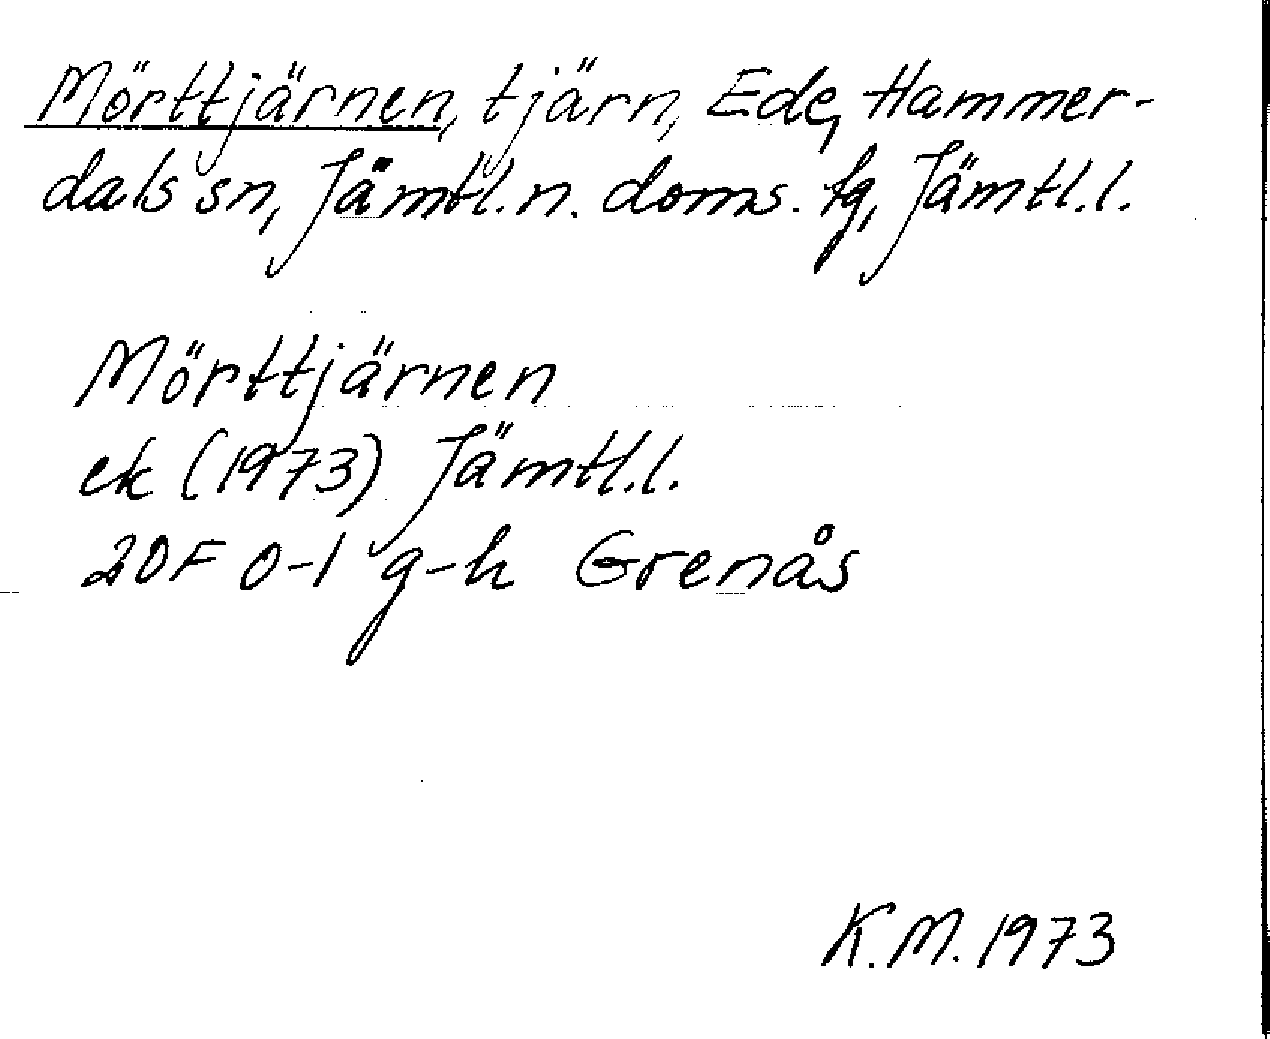 Mörttjärnen, tjärn, Ede, Hammer-
dals sn, Jämtl. n. doms. fg, Jämtl. l.
Mörttjärnen
ek (1973) Jämtl. l.
20F 0-1 g-h Grenås
K.M. 1973